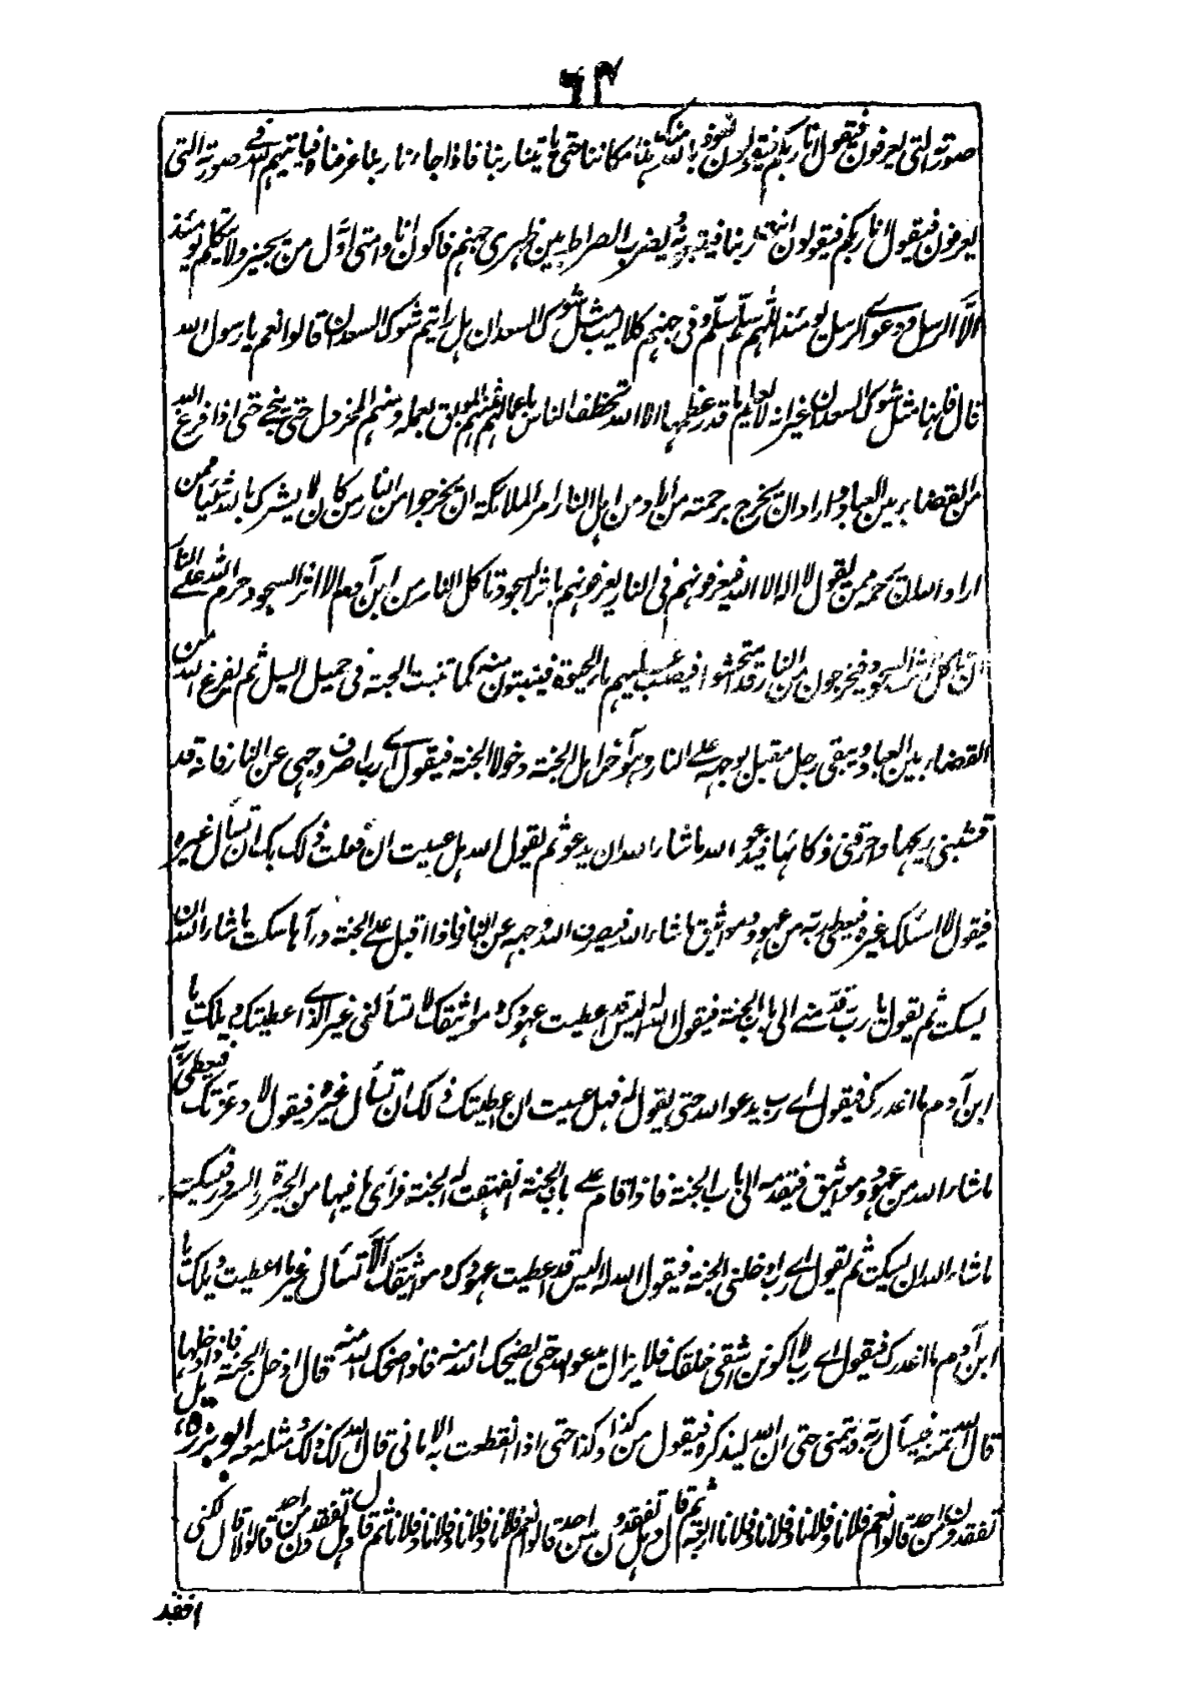 ٦٣
صورته التى يعرفون فيقول انا ربكم فيقولون نعوذ بالله منك هذا مكاننا حتى ياتينا ربنا فاذا جاءنا ربنا عرفناه فياتيهم الله فى صورته التى
يعرفون فيقول انا ربكم فيقولون انت ربنا فيتبعونه ويضرب الصراط بين ظهرى جهنم فاكون انا وامتى اول من يجيز ولا يتكلم يومئذ
الا الرسل ودعوى الرسل يومئذ اللهم سلم سلم وفى جهنم كلاليب مثل شوك السعدان هل رايتم شوك السعدان قالوا نعم يا رسول الله
قال فانها مثل شوك السعدان غير انه لا يعلم ما قدر عظمها الا الله تخطف الناس باعمالهم فمنهم الموبق بعمله ومنهم المخردل حتى ينجى حتى اذا فرغ الله
من القضاء بين العباد واراد ان يخرج برحمته من اراد من اهل النار امر الملائكة ان يخرجوا من النار من كان لا يشرك بالله شيئا ممن
اراد الله ان يرحمه ممن يقول لا اله الا الله فيعرفونهم فى النار يعرفونهم باثر السجود تاكل النار من ابن آدم الا اثر السجود حرم الله على النار
ان تاكل اثر السجود فيخرجون من النار قد امتحشوا فيصب عليهم ماء الحيوة فينبتون منه كما تنبت الحبة فى حميل السيل ثم يفرغ الله من
القضاء بين العباد ويبقى رجل مقبل بوجهه على النار وهو آخر اهل الجنة دخولا الجنة فيقول اى رب اصرف وجهى عن النار فانه قد
قشبنى ريحها واحرقنى ذكائها فيدعو الله ما شاء الله ان يدعو ثم يقول الله هل عسيت ان فعلت ذلك بك ان تسأل غيره
فيقول لا اسئلك غيره فيعطى ربه من عهود ومواثيق ما شاء الله فيصرف الله وجهه عن النار فاذا اقبل على الجنة ورآها سكت ما شاء الله ان
يسكت ثم يقول يا رب قدمنى الى باب الجنة فيقول الله له اليس قد اعطيت عهودك ومواثيقك لا تسألنى غير الذى اعطيتك ويلك يا
ابن آدم ما اغدرك فيقول اى رب يدعو الله حتى يقول له فهل عسيت ان اعطيتك ذلك ان تسأل غيره فيقول لا وعزتك فيعطى ربه
ما شاء الله من عهود ومواثيق فيقدمه الى باب الجنة فاذا قام على باب الجنة انفهقت له الجنة فرأى ما فيها من الحبرة والسرور فيسكت
ما شاء الله ان يسكت ثم يقول اى رب ادخلنى الجنة فيقول الله له اليس قد اعطيت عهودك ومواثيقك الا تسأل غير ما اعطيت ويلك يا
ابن آدم ما اغدرك فيقول اى رب لا اكونن اشقى خلقك فلا يزال يدعو الله حتى يضحك الله منه فاذا ضحك الله منه قال ادخل الجنة فاذا دخلها قيل
قال الله تمنه فيسأل ربه ويتمنى حتى ان الله ليذكره فيقول من كذا وكذا حتى اذا انقطعت به الامانى قال الله لك ذلك ومثله معه ابو برزة
تفقدون من احد قالوا نعم فلانا وفلانا وفلانا وفلانا اربعة ثم قال وهل تفقدون من احد قالوا نعم فلانا وفلانا وفلانا وفلانا ثم قال وهل تفقدون من احد قالوا لا قال لكنى
افقد